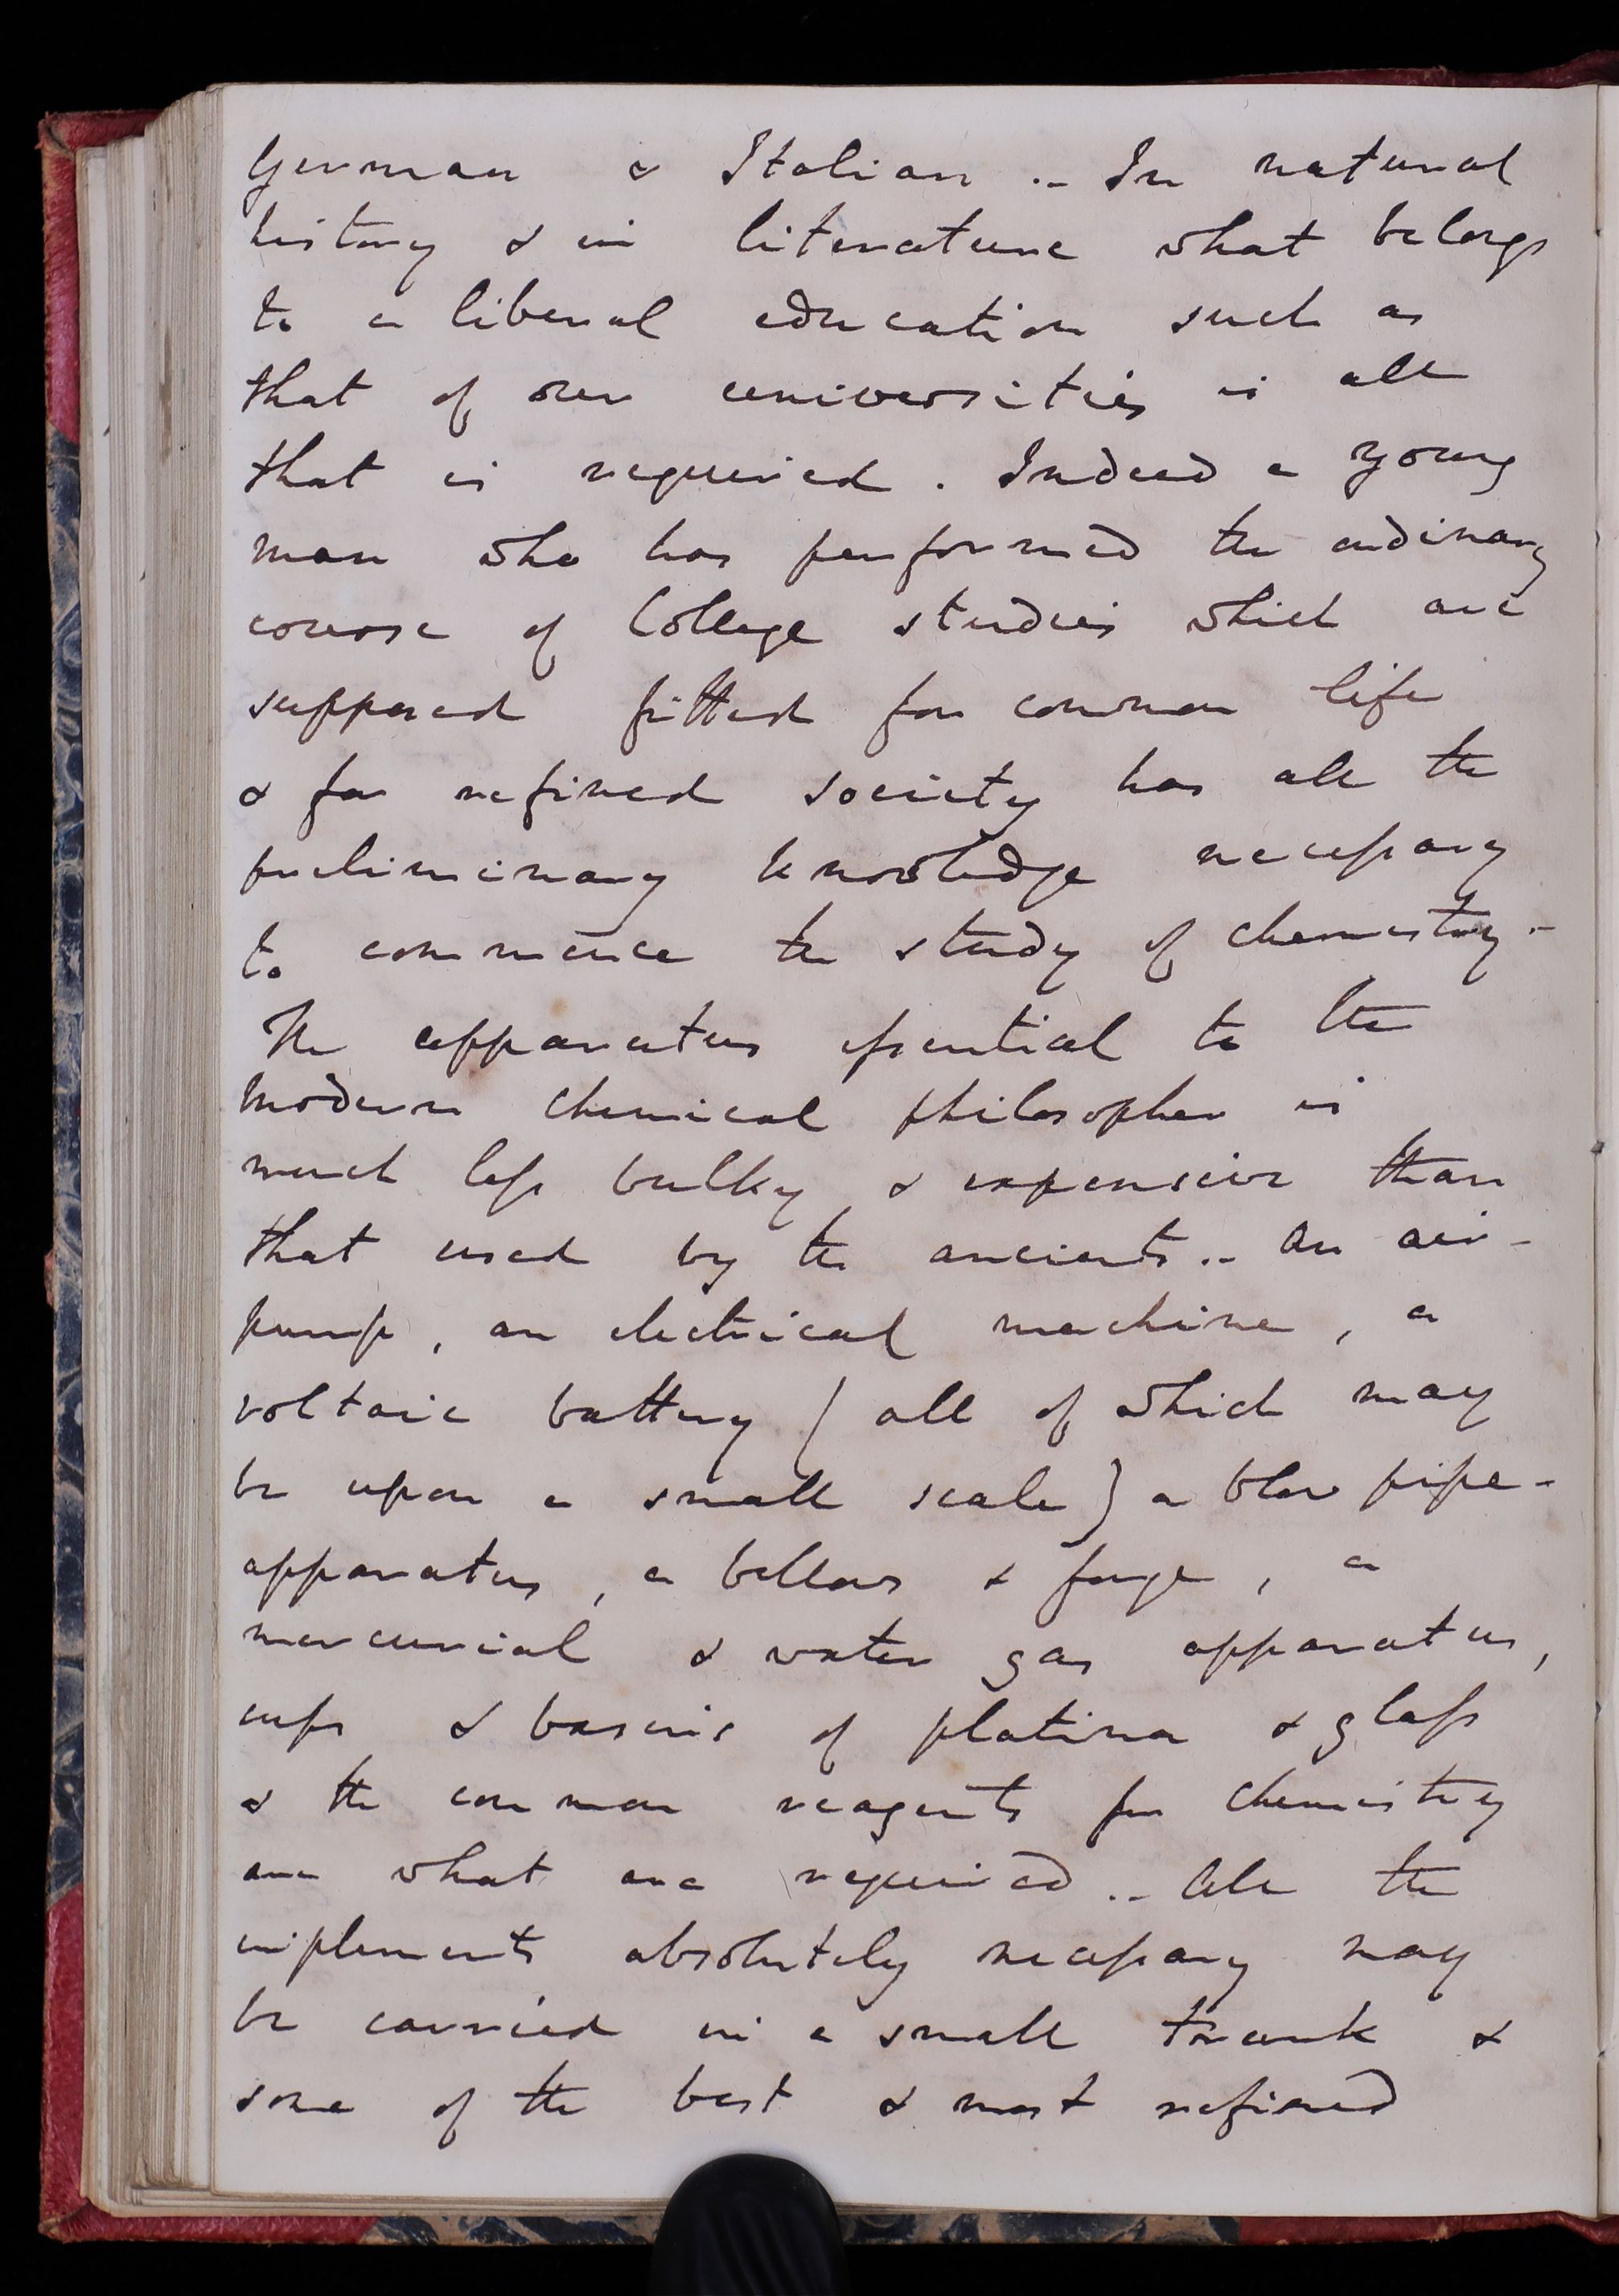 German & Italian .– In natural
history & in literature what belongs
to a liberal education such as
that of our universities is all
that is required . Indeed a young
man who has performed the ordinary
course of College studies which are
supposed fitted for common life
& for refined society has all the
preliminary knowledge necessary
to commence the study of chemistry –
The apparatus essential to the
modern chemical philosopher is
much less bulky & expensive than
that used by the ancients .– An air-
pump , an electrical machine , a
voltaic battery ( all of which may
be upon a small scale ) a blow pipe -
apparatus , a bellows & forge , a
mercurial & water gas apparatus ,
cups & basins of platina & glass
& the common reagents for chemistry
are what are required .– All the
implements absolutely necessary may
be carried in a small trunk &
some of the best & most refined